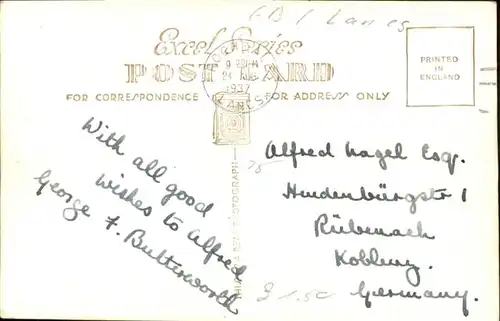 GB / Lancs
Excel Series
POST CARD
FOR CORRESPONDENCE
FOR ADDRESS ONLY
PRINTED
IN
ENGLAND
24
1937
LANCS
With all good
wishes to Alfred
George F. Butterworth
Alfred Nagel Esq.
Hindenbürgstr 1
Rübenach
Koblenz.
Germany.